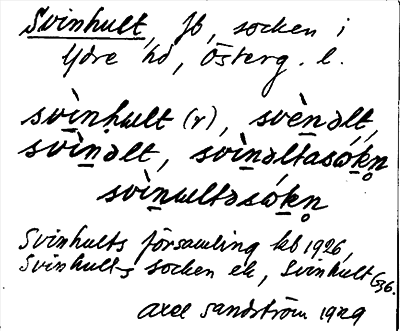 Svinhult, sb, socken i
Ydre hd, Österg. l.
svìnhult (r), svènəlt,
svìnəlt, svìnəltasókn̥
svìnultəsókn̥
Svinhults församling kb 1926,
Svinhults socken ek, Svinhult G36.
Axel Sandström 1929